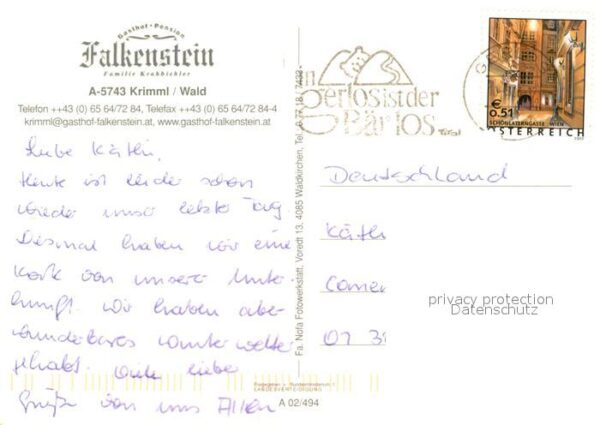 Gasthof · Pension
Falkenstein
Familie Krahbichler
A-5743 Krimml / Wald
Telefon ++43 (0) 65 64/72 84, Telefax ++43 (0) 65 64/72 84-4
krimml@gasthof-falkenstein.at, www.gasthof-falkenstein.at
Liebe Käthi,
Heute ist leider schon
wieder unser letzter Tag.
Diesmal haben wir eine
Karte von unserer Unter-
kunft. Wir haben aber
wunderbares Winterwetter
gehabt. Viele liebe
Grüße von uns Allen
Fa. Nofa Fotowerkstatt, Voredt 13, 4085 Waldkirchen, Tel.
A 02/494
in
gerlos ist der
Bär los
Tirol
€
0.51
SCHÖNLATERNGASSE, WIEN
ÖSTERREICH
Deutschland
Käth
privacy protection
Datenschutz